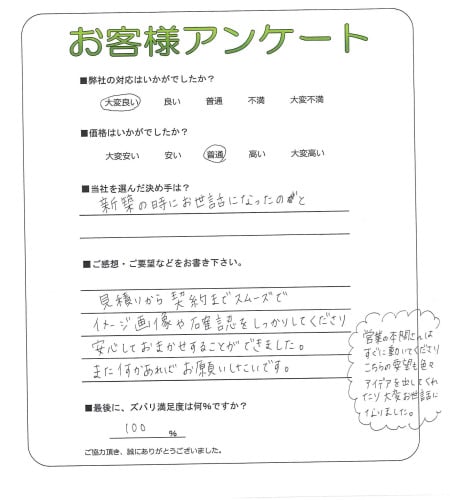 お客様アンケート
■弊社の対応はいかがでしたか?
大変良い 良い 普通 不満 大変不満
■価格はいかがでしたか?
大変安い 安い 普通 高い 大変高い
■当社を選んだ決め手は?
新築の時にお世話になったのと
■ご感想・ご要望などをお書き下さい。
見積りから契約までスムーズで
イメージ画像や確認をしっかりしてくださり
安心しておまかせすることができました。
また何かあればお願いしたいです。
営業の本間さんは
すぐに動いてくださり
こちらの要望も色々
アイデアを出してくれ
たり大変お世話に
なりました。
■最後に、ズバリ満足度は何%ですか?
100 %
ご協力頂き、誠にありがとうございました。